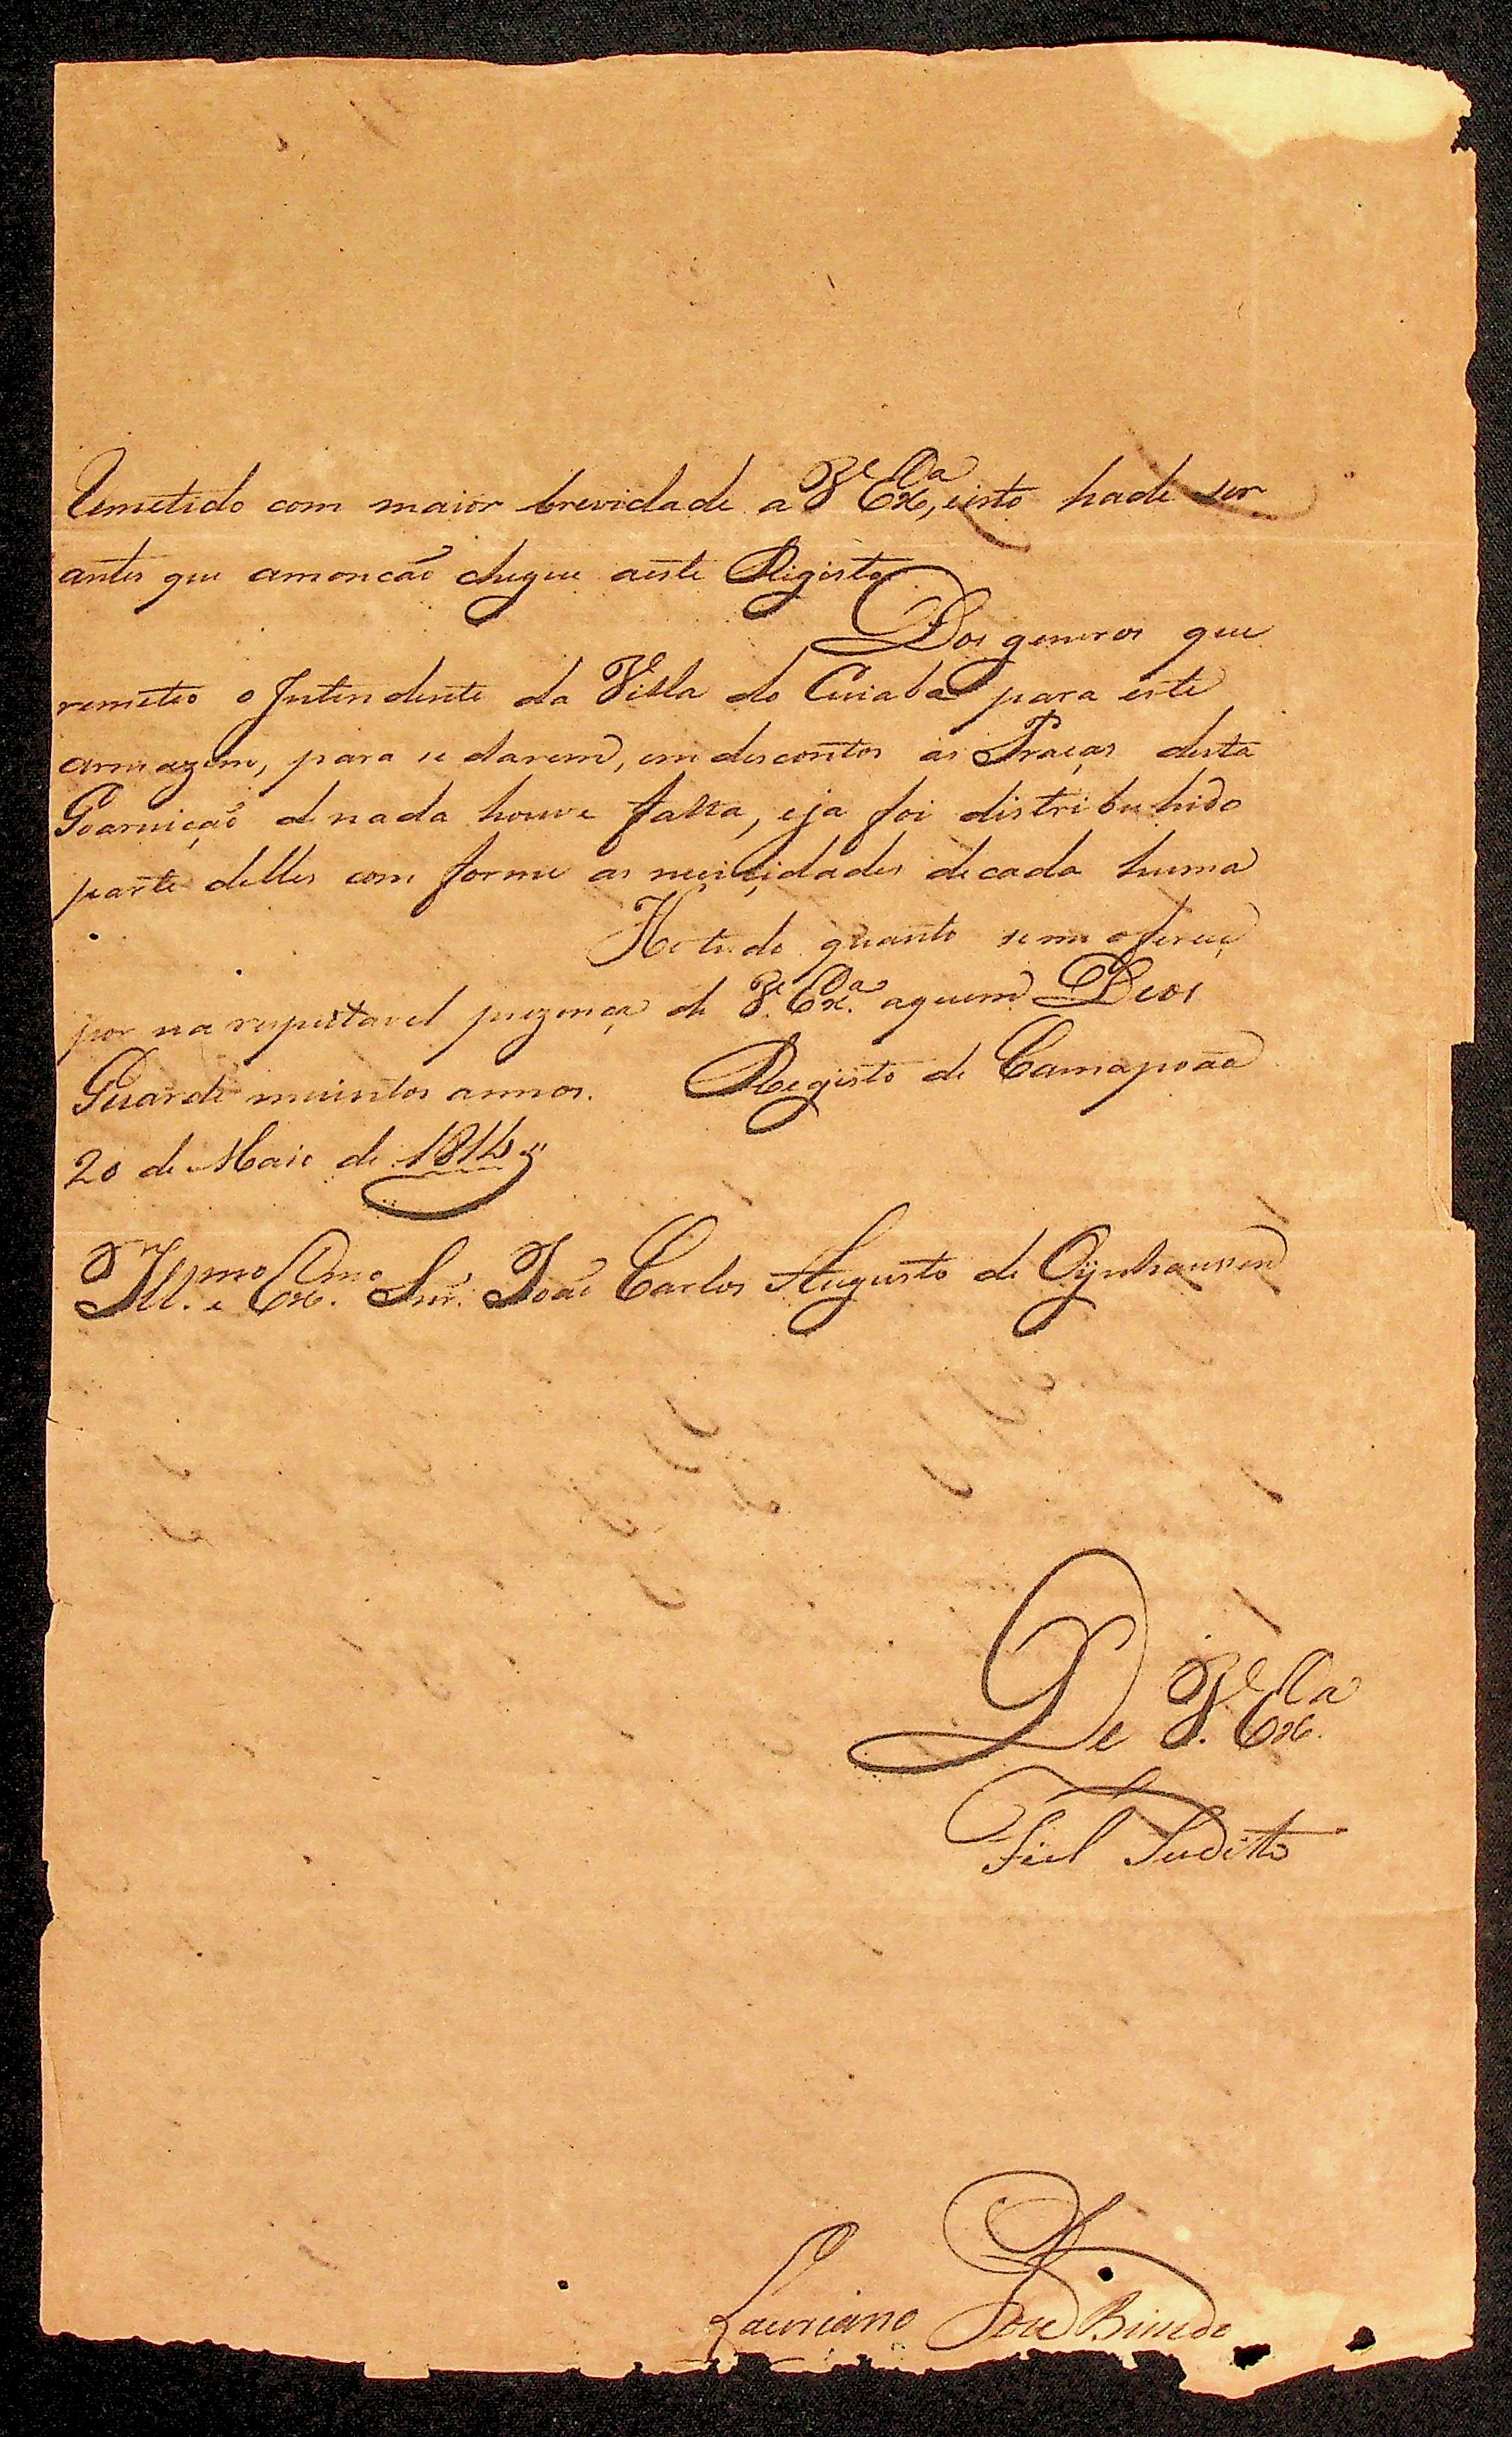 Remetido com maior brevidade a V. Ex.ª, eisto hade ser
antes que amoncaõ chegue aeste Rigisto
Dos generos que
remeteo o Intendente da Villa do Cuiabá para este
armazem, para se darem, em descontos ás Praças desta
Goarniçaõ de nada houve falta, eja foi distribuhido
parte delles com forme as neciçidades decada huma
He tudo quanto seme ofereçe
por na respeitavel prezença de V. Ex.ª aquem Deos
Guarde muintos annos. Registo de Camapoaã
20 de Maio de 1814,,
Ill.mo e Ex.mo Snr. Joaõ Carlos Augusto de Oÿnhaussen
De V. Ex.ª
Fiel Sudito
Lauriano Joze